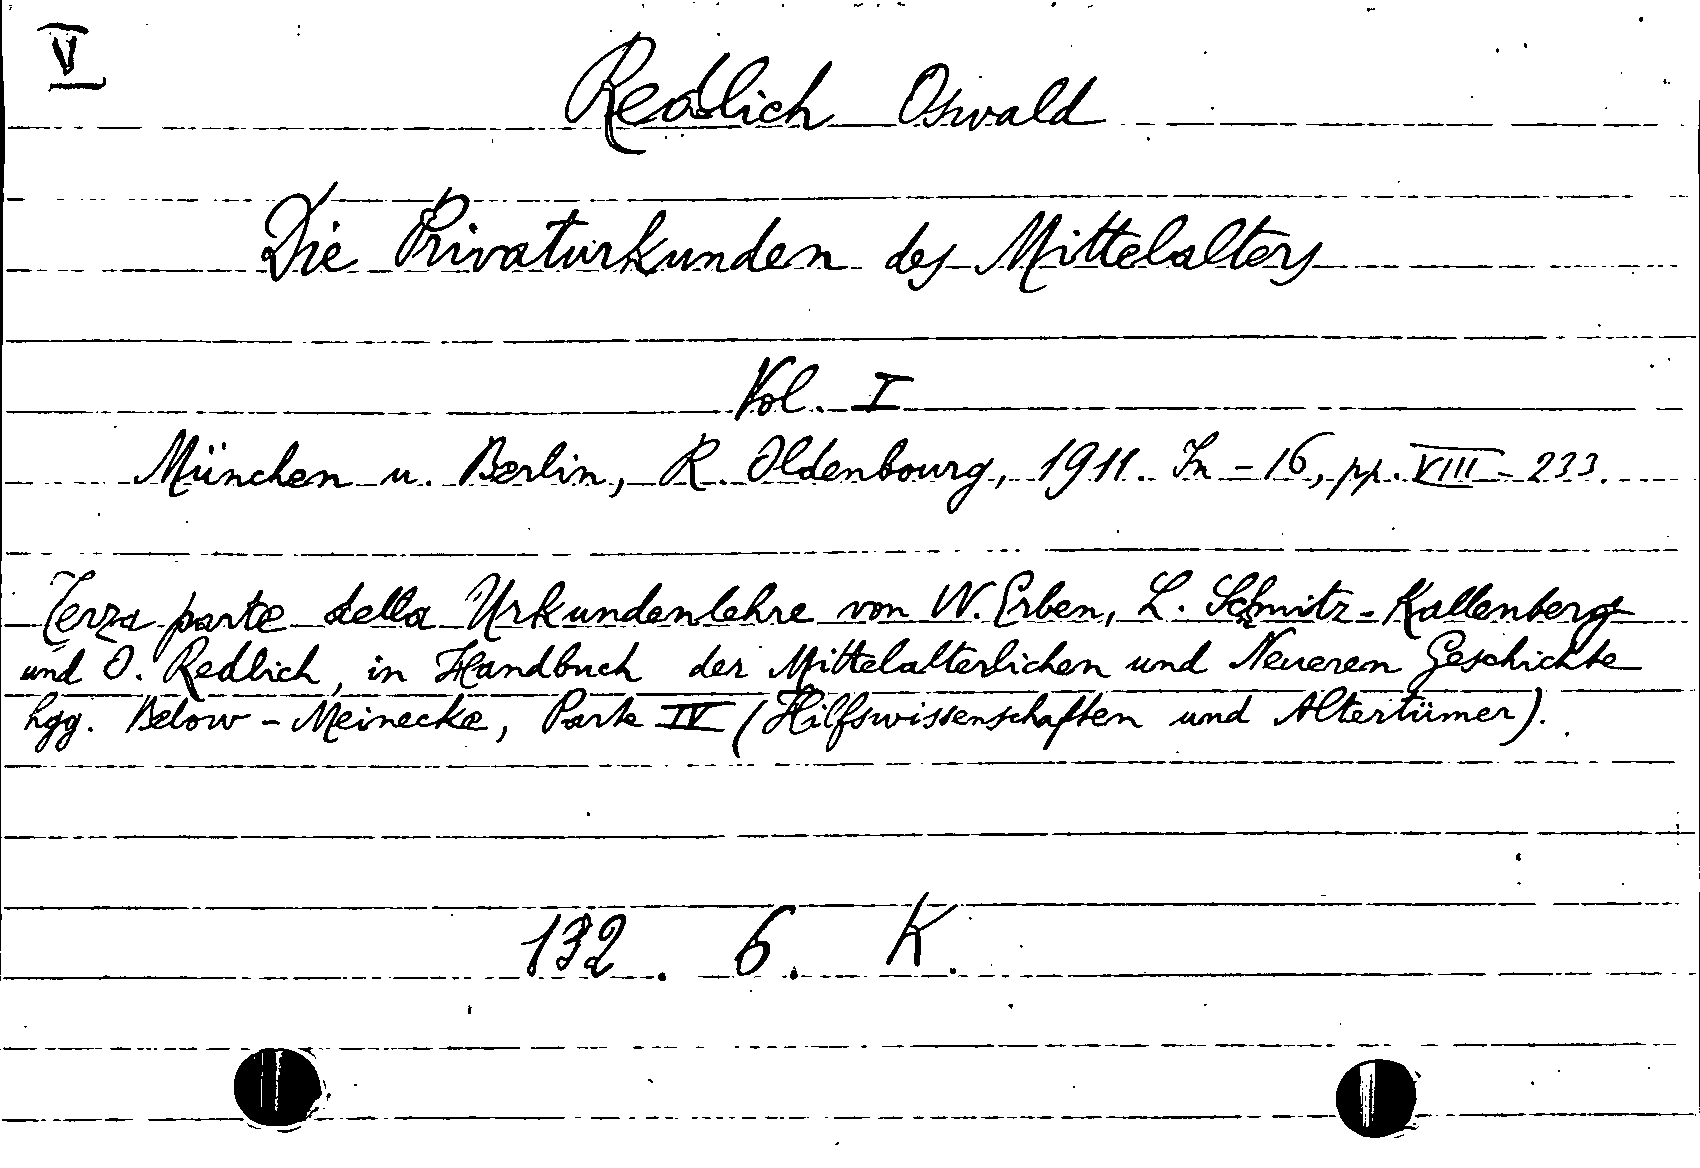 V
Redlich Oswald
Die Privaturkunden des Mittelalters
Vol. I
München u. Berlin, R. Oldenbourg, 1911. In-16, pp. VIII-233.
Terza parte della Urkundenlehre von W. Erben, L. Schmitz-Kallenberg
und O. Redlich, in Handbuch der Mittelalterlichen und Neueren Geschichte
hgg. Below-Meinecke, Parte IV (Hilfswissenschaften und Altertümer).
132. 6. K.